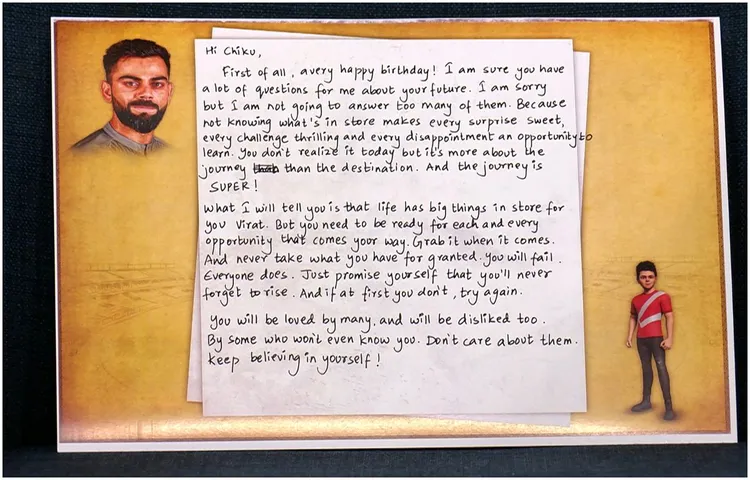 Hi Chiku,
First of all, a very happy birthday! I am sure you have
a lot of questions for me about your future. I am sorry
but I am not going to answer too many of them. Because
not knowing what's in store makes every surprise sweet,
every challenge thrilling and every disappointment an opportunity to
learn. You don't realize it today but it's more about the
journey than the destination. And the journey is
SUPER!
What I will tell you is that life has big things in store for
you Virat. But you need to be ready for each and every
opportunity that comes your way. Grab it when it comes.
And never take what you have for granted. You will fail.
Everyone does. Just promise yourself that you'll never
forget to rise. And if at first you don't, try again.
You will be loved by many, and will be disliked too.
By some who won't even know you. Don't care about them.
Keep believing in yourself!